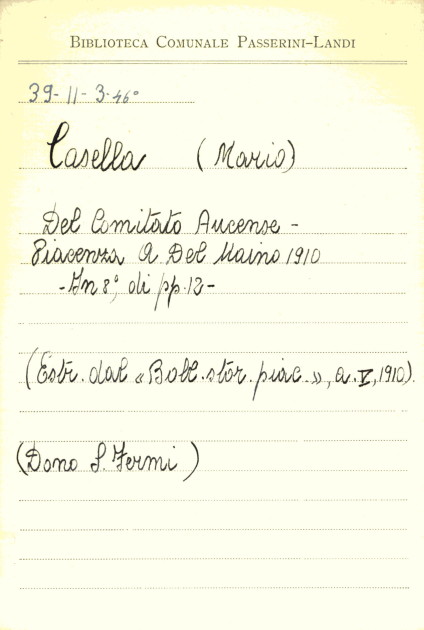 BIBLIOTECA COMUNALE PASSERINI-LANDI
39-11-3.46°
Casella (Mario)
Del Comitato Aucense -
Piacenza A. Del Maino 1910
- In 8°, di pp. 12 -
(Estr. dal «Boll. stor. piac.», a. V, 1910).
(Dono S. Fermi)